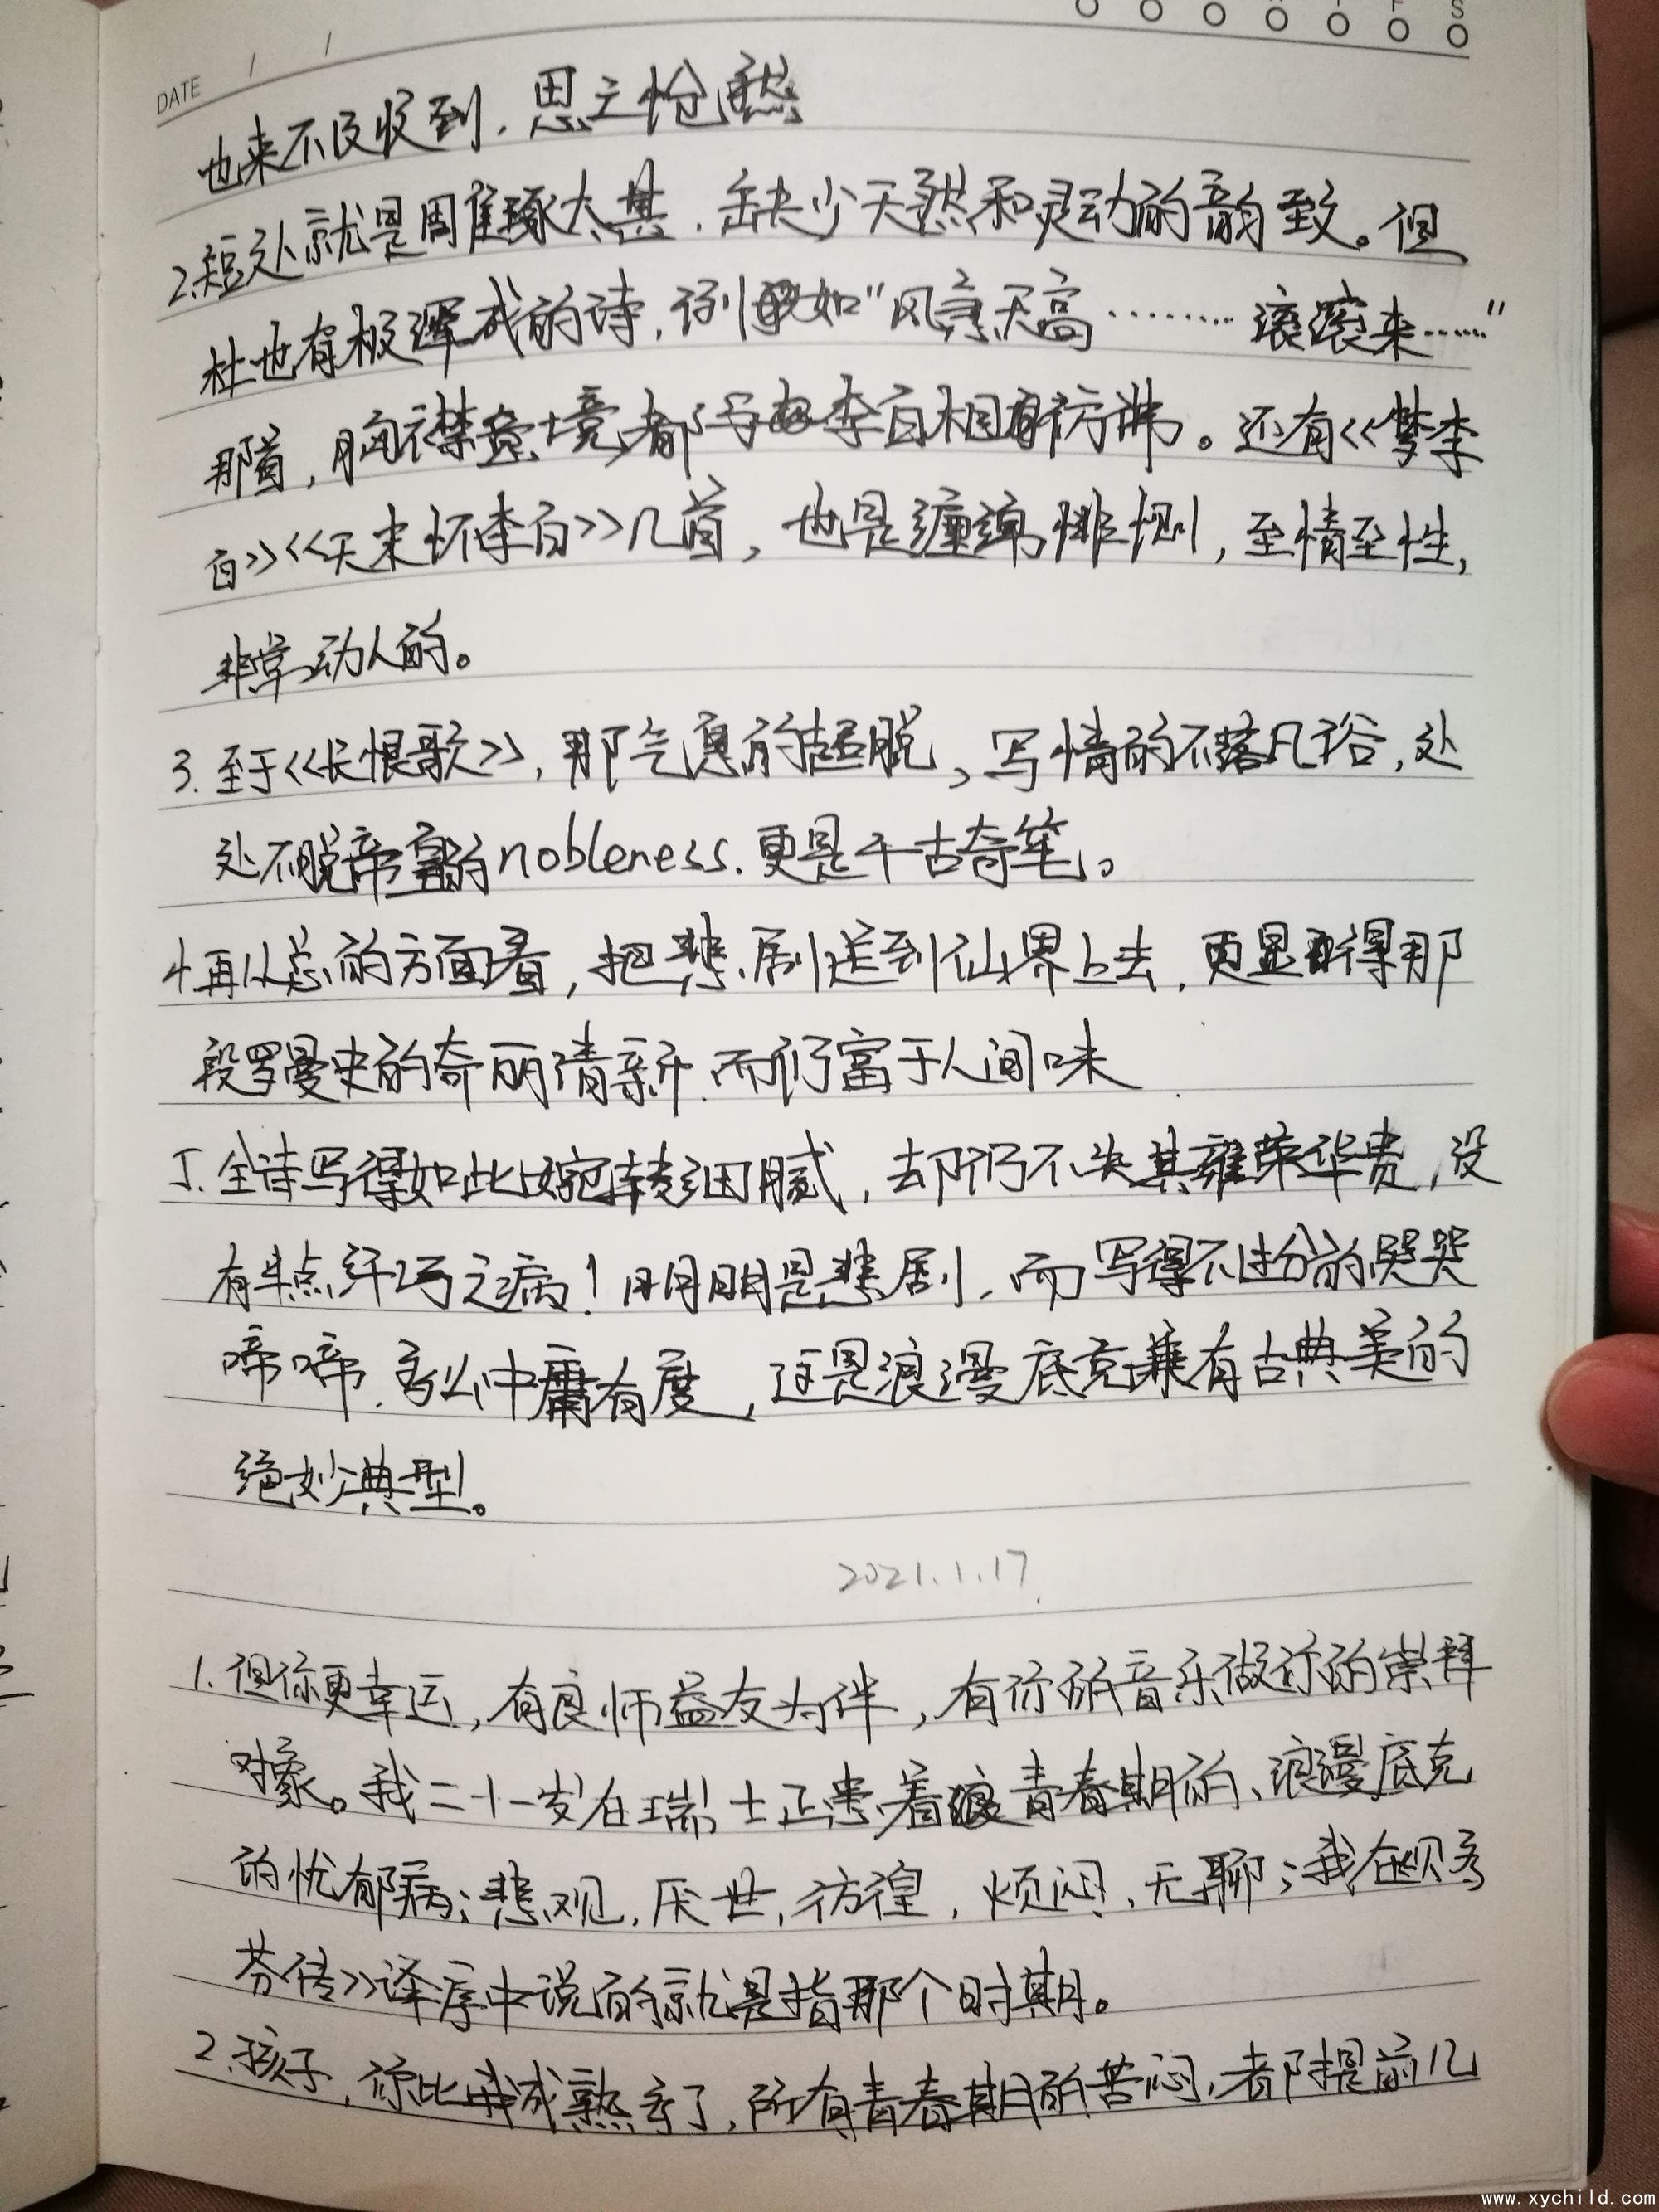 S
DATE / /
也来不及收到,思之怆然
2.短处就是周雕琢太甚,缺少天然和灵动的韵致。但
杜也有极浑成的诗,例如"风急天高………滚滚来……"
那首,胸襟意境都与李白相彷彿。还有《梦李
白》《天末怀李白》几首,也是缠绵悱恻,至情至性,
非常动人的。
3.至于《长恨歌》,那气息的超脱,写情的不落凡俗,处
处不脱帝皇的nobleness.更是千古奇笔。
4.再从总的方面看,把悲剧送到仙界上去,更显得那
段罗曼史的奇丽清新.而仍富于人间味
5.全诗写得如此婉转细腻,却仍不失其雍荣华贵,没
有半点纤巧之病!明明是悲剧,而写得不过分的哭哭
啼啼.多么中庸有度,这是浪漫底克兼有古典美的
绝妙典型。
2021.1.17.
1.但你更幸运,有良师益友为伴,有你的音乐做你的崇拜
对象。我二十一岁在瑞士正患着青春期的、浪漫底克
的忧郁病;悲观,厌世,彷徨,烦闷,无聊;我在贝多
芬传》译序中说的就是指那个时期。
2.孩子,你比我成熟多了,所有青春期的苦闷,都提前几
www.xychild.com